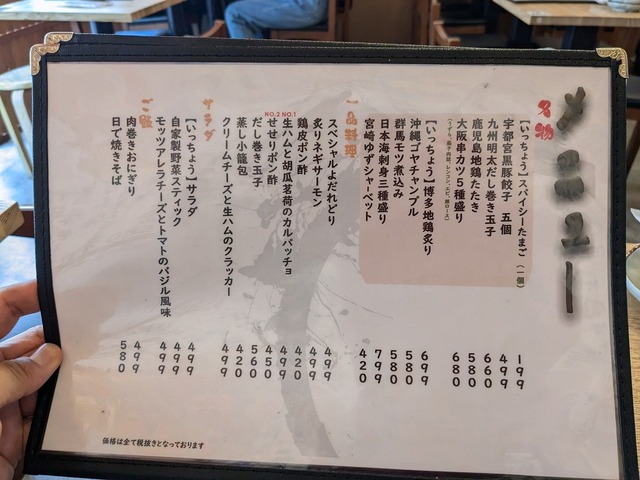 メニュー
名物
【いっちょう】スパイシーたまご(一個) 199
宇都宮黒豚餃子 五個 499
九州明太だし巻き玉子 660
鹿児島地鶏たたき 580
大阪串カツ5種盛り 680
【いっちょう】博多地鶏炙り 699
沖縄ゴヤチャンプル 580
群馬モツ煮込み 580
日本海刺身三種盛り 799
宮崎ゆずシャーベット 420
一品料理
スペシャルよだれどり 499
炙りネギサーモン 499
鶏皮ポン酢 420
NO.1
生ハムと胡瓜茗荷のカルパッチョ 499
NO.2
せせりポン酢 450
だし巻き玉子 560
蒸し小籠包 420
クリームチーズと生ハムのクラッカー 499
サラダ
【いっちょう】サラダ 499
自家製野菜スティック 499
モッツアレラチーズとトマトのバジル風味 499
ご飯
肉巻きおにぎり 499
日で焼きそば 580
価格は全て税抜きとなっております